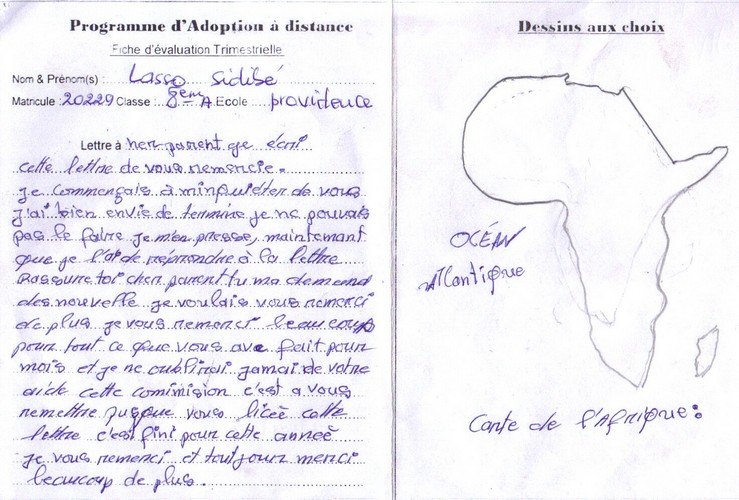 Programme d'Adoption à distance
Fiche d'évaluation Trimestrielle
Nom & Prénom(s) : Lasso Sidibé
Matricule : 20229 Classe : 8em A Ecole providence
Lettre à her parent je écri
cette lettre de vous remencie.
je commençais à m'inquiéter de vous
j'ai bien envie de termine je ne pouvais
pas le faire je m'en presse, maintemant
que je l'aide reprondre à la lettre
Rassure toi cher parent tu ma demand
des nouvelle je voulais vous remerci
de plus je vous remerci beaucoup
pour tout ce que vous ave fait pour
mois et je ne oublirai jamai de votre
aide cette commision c'est a vous
remettre jusque vous liceè cette
lettre c'est fini pour cette anneè
je vous remerci et toutjour merci
beaucoup de plus.
Dessins aux choix
OCÉAN
Atlantique
Carte de l'Afrique: